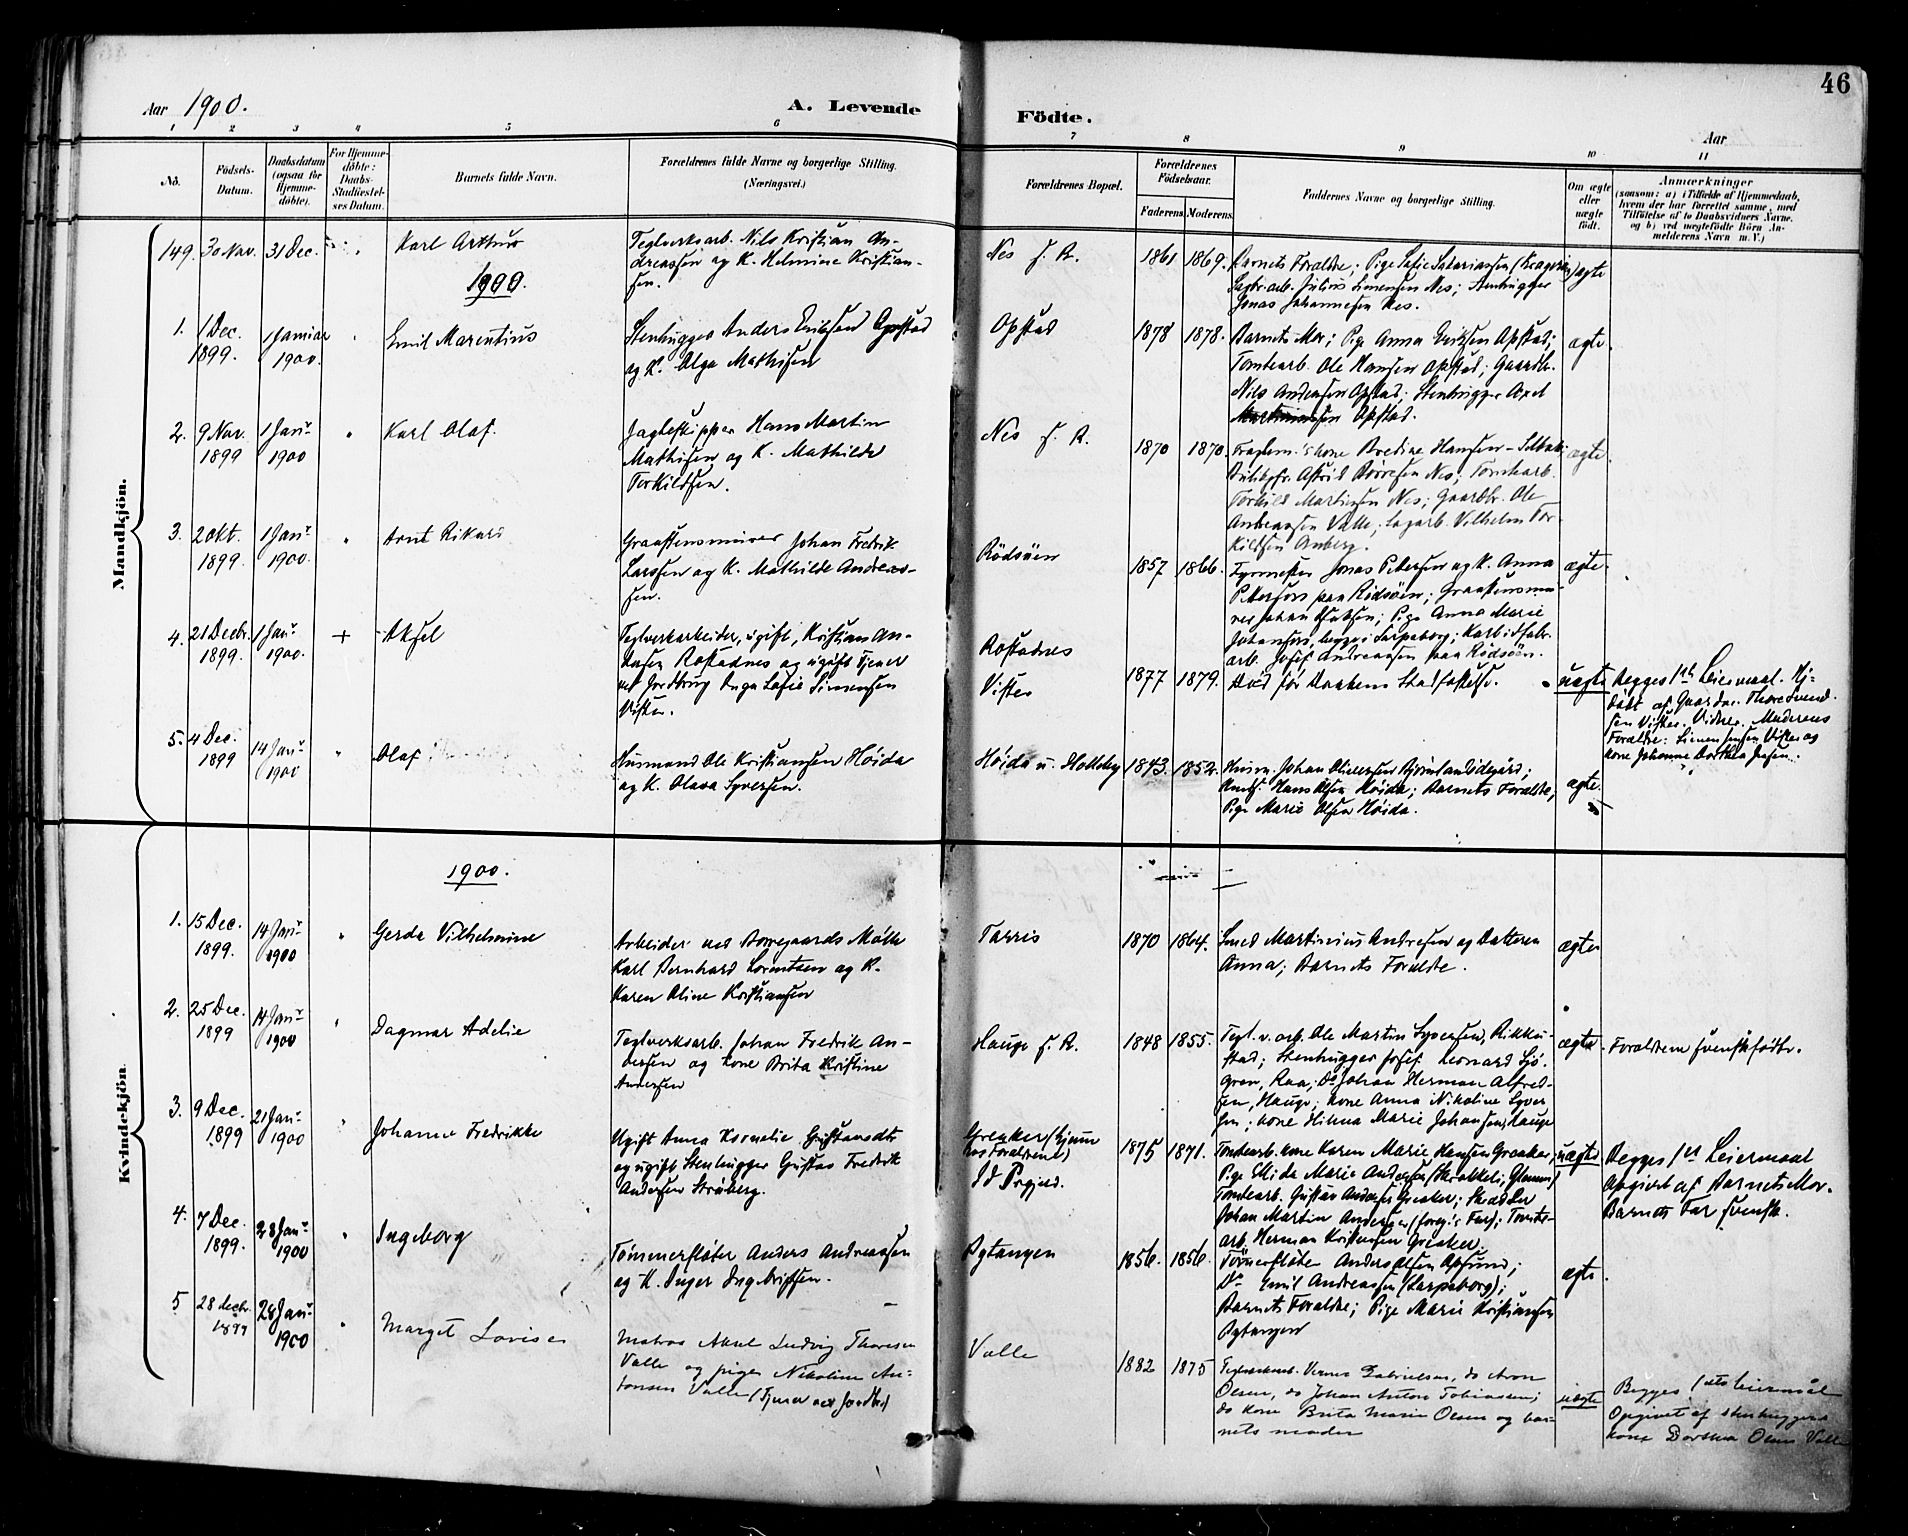 46
Aar 1900.
A. Levende Födte.
Aar
1 2 3 4 5 6 7 8 9 10 11
No.
Födsels-
Datum.
Daabsdatum
(ogsaa for
Hjemme-
döbte).
For Hjemme-
döbte:
Daabs-
Stadfæstel-
ses Datum.
Barnets fulde Navn.
Forældrenes fulde Navne og borgerlige Stilling.
(Næringsvei.)
Forældrenes Bopæl.
Forældrenes
Födselsaar.
Faderens Moderens
Faddernes Navne og borgerlige Stilling.
Om ægte
eller
uægte
födt.
Anmærkninger
(saasom: a) i Tilfælde af Hjemmedaab,
hvem der har forrettet samme, med
Tilföielse af to Daabsvidners Navne.
og b) ved uægtefödte Börn An-
melderens Navn m. V.)
Mandkjön.
149. 30 Nov. 31 Dec. " Karl Arthur
Teglverksarb. Nils Kristian An-
dreassen og K. Helmine Kristian-
sen.
Nes f. R. 1861 1869.
Barnets Forældre; Pige Sofie
Julius Simensen Nes; Stenhugger
Jonas Johannesen Nes.
ægte
1900.
1. 1 Dec.
1899.
1 Januar
1900.
" Emil Marentius
Stenhugger Anders Eriksen Opstad
og K. Olga Mathisen
Opstad 1878 1878.
Barnets Mor; Pige Anna Eriksen Opstad;
Tomtearb. Ole Hansen Opstad; Gaardbr.
Nils Andersen Opstad; Stenhugger Axel
Opstad.
ægte.
2. 9 Nov.
1899
1 Jan
1900
" Karl Olaf.
Jagteskipper Hans Martin
Mathisen og K. Mathilde
Torkildsen.
Nes f. R. 1870 1870.
kone Bredine Hansen - Selbak;
Astrid Börresen Nes; Tomtearb.
Torkild Martinsen Nes; Gaardbr. Ole
Andreassen Valle; Vilhelm Tor-
kildsen Anberg.
ægte.
3. 2 Okt.
1899.
1 Jan
1900.
" Arnt Rikard
Graastensmurer Johan Fredrik
Larssen og K. Mathilde Andreas-
sen.
Rödsöen 1857 1866.
Jonas Petersen og K. Anna
Petersen paa Rödsöen; Graastensmu-
rer Johan; Pige Anna Marie
Johansen, begge i Sarpsborg; Karbidfabr.
arb. Josef Andreassen paa Rödsöen.
ægte.
4. 21 Decbr.
1899.
1 Jan
1900.
+ Aksel
Teglverkarbeider, ugift, Kristian An-
Rostadnes og ugift Tjener
ved Jordbrug Inga Sofie Simensen
Vister.
Rostadnes
Vister
1877 1879. Död för Daabens Stadfæstelse.
uægte
Begges 1ste Leiermaal. Hj-
döbt af Gaardm. Thore Svend-
sen Vister. Vidner. Moderens
Forældre: Simen Jensen Vister og
kone Johanne Dorthea Jensen.
5. 4 Dec.
1899
14 Jan
1900
" Olaf
Husmand Ole Kristiansen Höida
og K. Olava Syversen.
Höida u. Holleby 1843. 1852.
Husm. Johan Oliversen;
Hans Olsen Höida; Barnets Forældre;
Pige Marie Olsen Höida.
ægte.
Kvindekjön.
1900.
1. 15 Dec.
1899.
14 Jan
1900
" Gerda Vilhelmine
Arbeider ved Borregaards Mölle
Karl Bernhard Lorentsen og K.
Karen Oline Kristiansen
Tarris 1870 1864.
Smed Martinius Andresen og Datteren
Anna; Barnets Forældre.
ægte
2. 25 Dec.
1899
14 Jan
1900
" Dagmar Adelie
Teglverksarb. Johan Fredrik An-
dersen og kone Brita Kristine
Andersen
Hauge f. R. 1848 1855.
Tegl.v. arb. Ole Martin Syversen, Rikku-
stad; Stenhugger Josef Leonard Sjö-
gren, Raa; Do Johan Herman Alfred-
sen, Hauge; kone Anna Nikoline Syver-
sen; kone Hilma Marie Johansen, Hauge
ægte. Forældrene svenskfödte.
3. 9 Dec.
1899
21 Jan
1900
" Johanne Fredrikke
Ugift Anna Kornelie
og ugift Stenhugger Gustav Fredrik
Andersen Ströberg.
Greaker (hjemme
hos Forældrene)
Id Prgjeld.
1875 1871.
Tomtearb. kone Karen Marie Hansen Greaker;
Pige Elida Marie Andersen
Tomtearb. Gustav Andersen Greaker; Skrædder
Johan Martin Andersen; Tomte-
arb. Herman Kristensen Greaker.
uægte
Begges 1ste Leiermaal
Opgivet af Barnets Mor.
Barnets Far svensk.
4. 7 Dec.
1899.
28 Jan
1900
" Ingeborg
Tömmerflöter Anders Andreassen
og K. Inger Ingebrigtsen.
Pytangen 1856. 1856.
Anders Olsen Opsund;
Do Emil Andreassen (Sarpsborg);
Barnets Forældre; Pige Marie Kristiansen
Pytangen
ægte.
5 28 decbr.
1899
28 Jan
1900
" Margot Lovise
Matros Aksel Ludvig Thoresen
Valle og pige Nikoline An-
tonsen Valle (Tjener ved Jordbr)
Valle 1882 1875
Teglverksarb. Gabrielsen, do Aron
Olsen, do Johan Anton Tobiassen;
do kone Brita Marie Olsen og bar-
nets moder
uægte
Begges 1ste leiermål
Opgivet af stenhuggers
kone Dorthea Olsen Valle